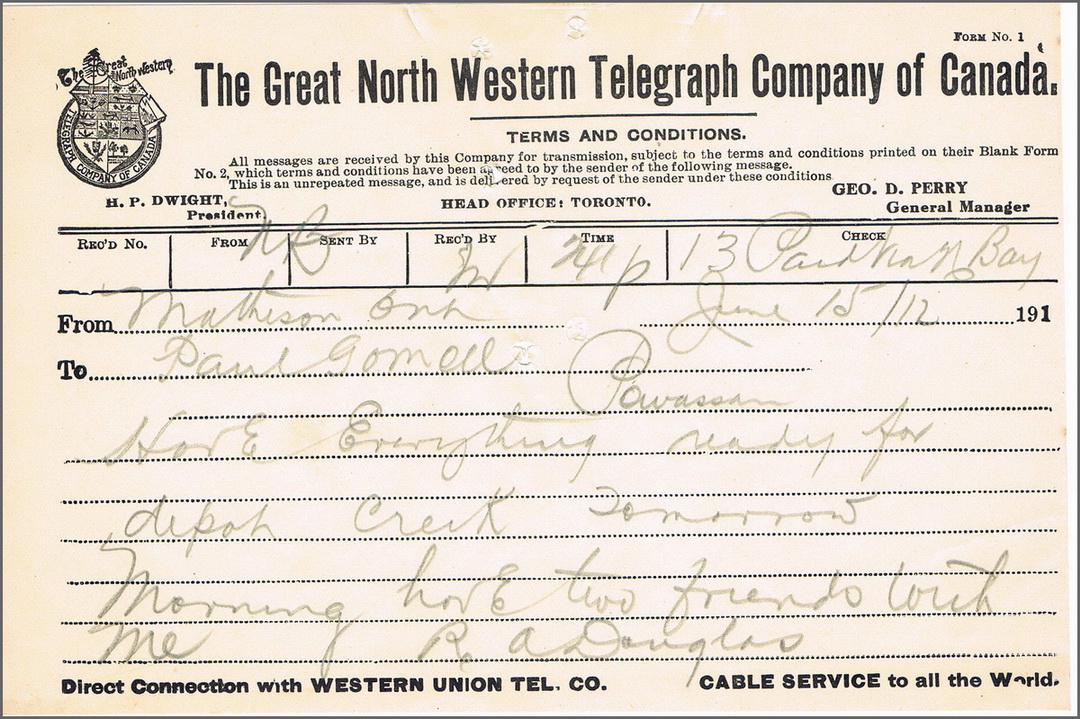 FORM No. 1
The Great North Western
TELEGRAPH COMPANY OF CANADA
The Great North Western Telegraph Company of Canada.
TERMS AND CONDITIONS.
All messages are received by this Company for transmission, subject to the terms and conditions printed on their Blank Form
No. 2, which terms and conditions have been agreed to by the sender of the following message.
This is an unrepeated message, and is delivered by request of the sender under these conditions
H. P. DWIGHT,
President.
HEAD OFFICE: TORONTO.
GEO. D. PERRY
General Manager
REC'D No. FROM SENT BY REC'D BY TIME CHECK
13 Paid Bay
From Matheson Ont June 15/12 191
To Paul Gomoll
Powassan
Have Everything ready for
depot Creek Tomorrow
Morning have two friends with
Me R A Douglas
Direct Connection with WESTERN UNION TEL. CO. CABLE SERVICE to all the World.